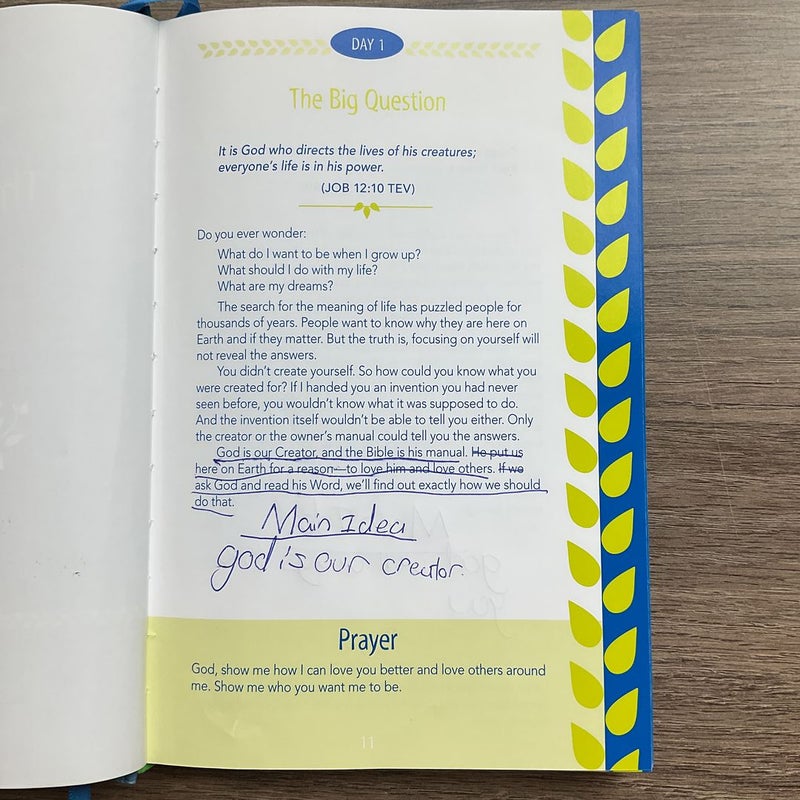 DAY 1
The Big Question
It is God who directs the lives of his creatures;
everyone's life is in his power.
(JOB 12:10 TEV)
Do you ever wonder:
What do I want to be when I grow up?
What should I do with my life?
What are my dreams?
The search for the meaning of life has puzzled people for
thousands of years. People want to know why they are here on
Earth and if they matter. But the truth is, focusing on yourself will
not reveal the answers.
You didn't create yourself. So how could you know what you
were created for? If I handed you an invention you had never
seen before, you wouldn't know what it was supposed to do.
And the invention itself wouldn't be able to tell you either. Only
the creator or the owner's manual could tell you the answers.
God is our Creator, and the Bible is his manual. He put us
here on Earth for a reason—to love him and love others. If we
ask God and read his Word, we'll find out exactly how we should
do that.
Main Idea
god is our creator.
Prayer
God, show me how I can love you better and love others around
me. Show me who you want me to be.
11